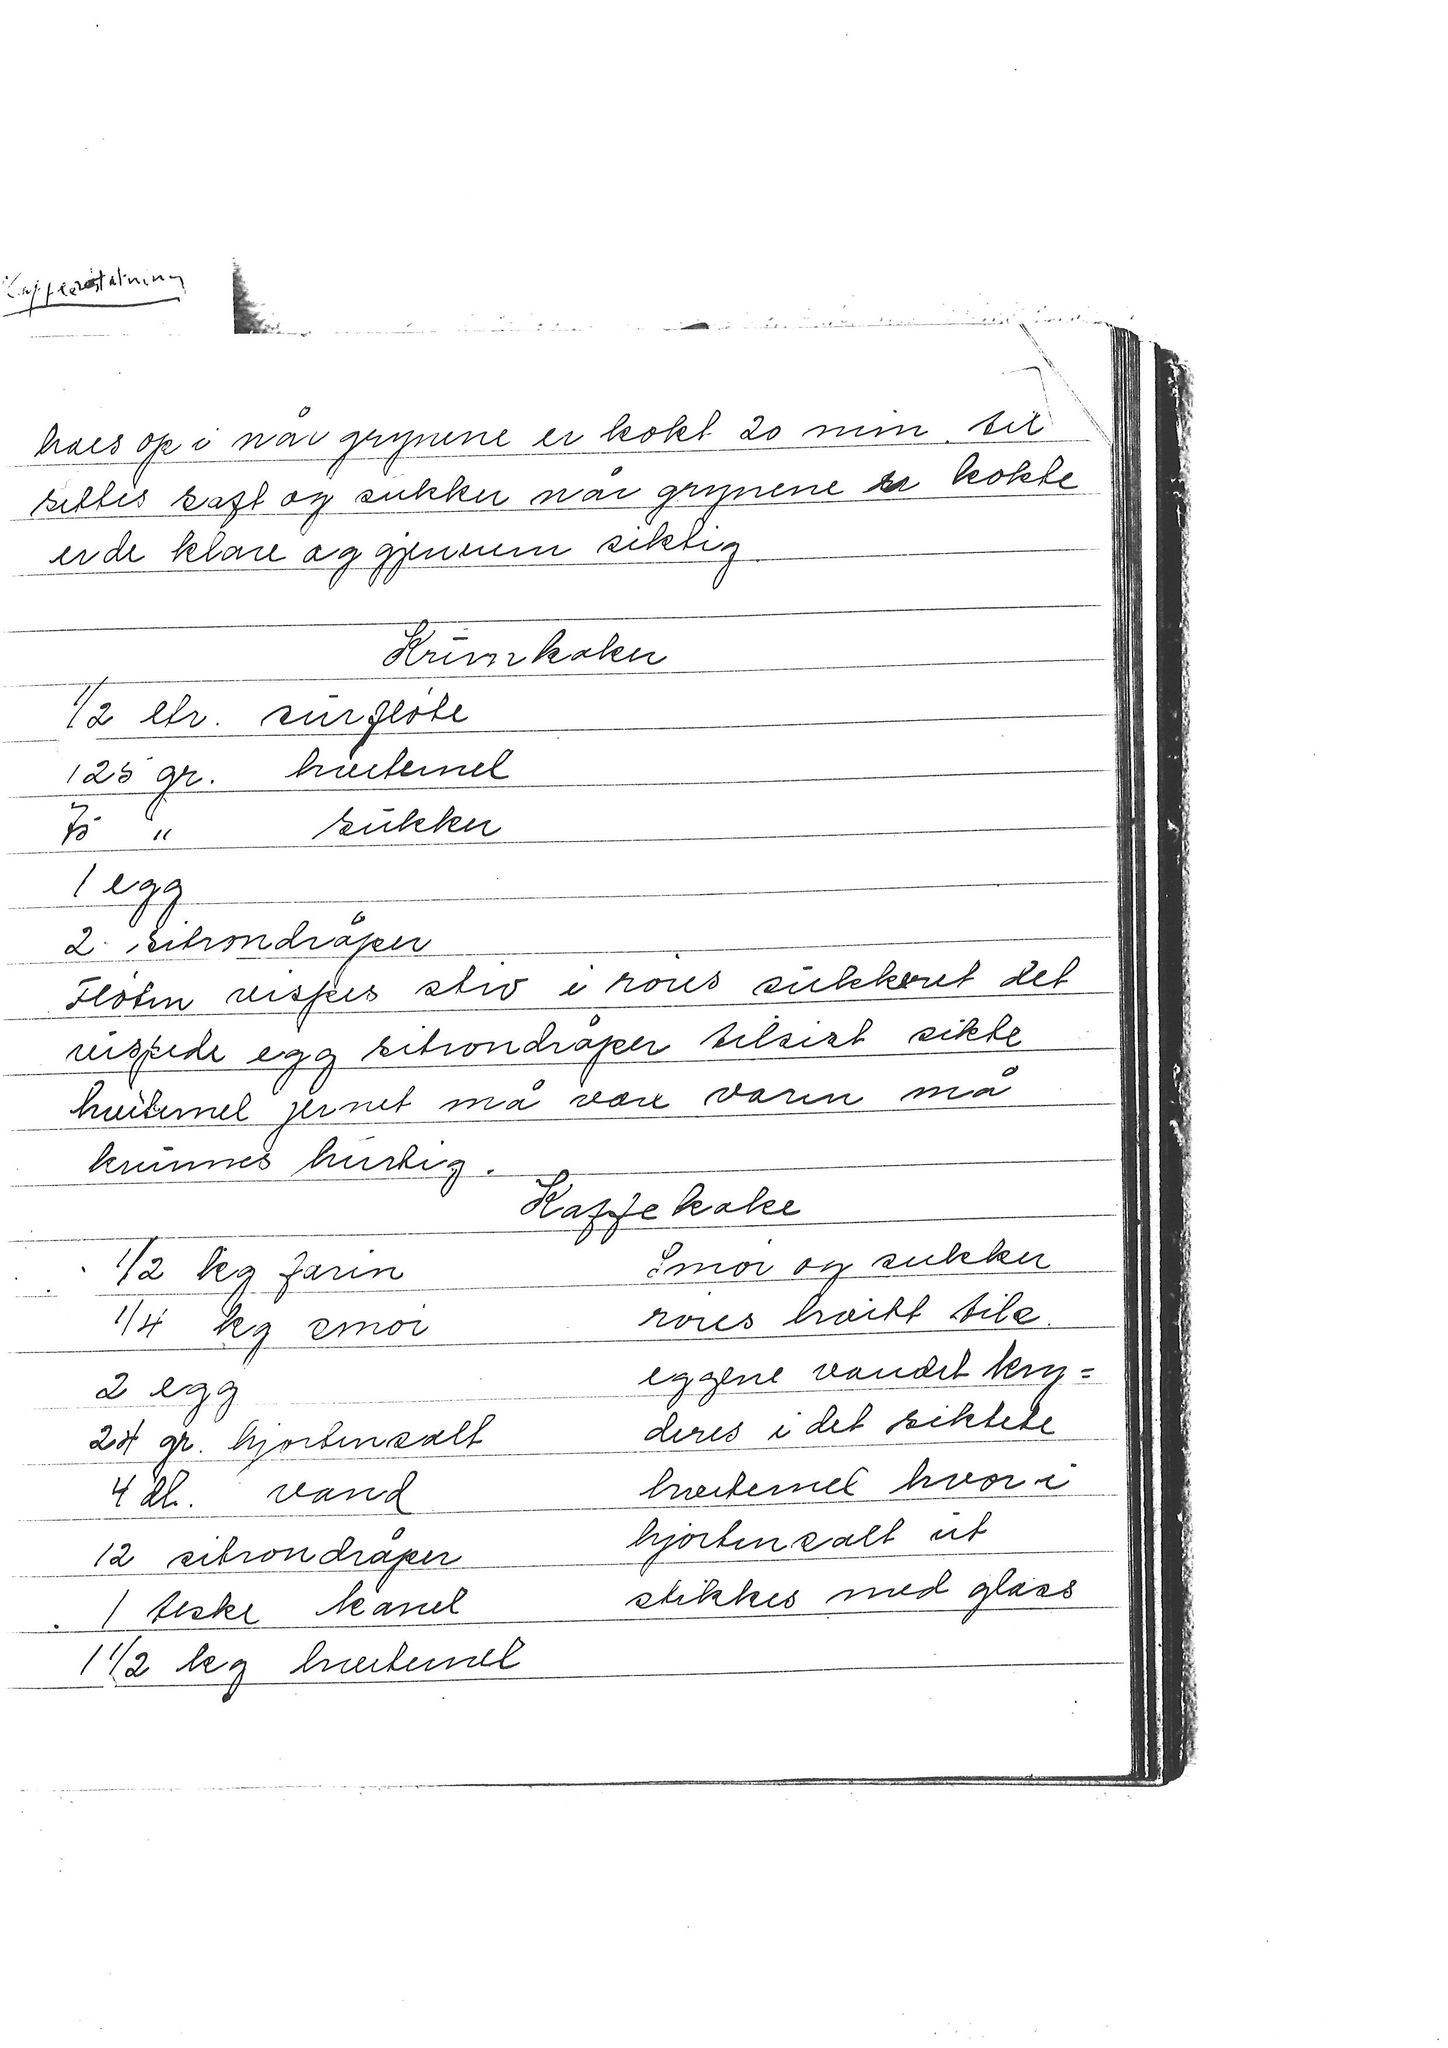 Kaffeerstatning
haes op i når grynene er kokt 20 min. til
settes saft og sukker når grynene er kokte
er de klare og gjennem siktig
Krumkaker
1/2 ltr. surfløte
125 gr. hveitemel
75 " sukker
1 egg
2 sitrondråper
Fløten vispes stiv i røres sukkeret det
vispede egg sitrondråper tilsist sikte
hveitemel jernet må være varm må
krummes hurtig.
Kaffekake
1/2 kg farin
1/4 kg smør
2 egg
24 gr. hjortensalt
4 dl. vand
12 sitrondråper
1 teske kanel
1 1/2 kg hveitemel
Smør og sukker
røres hvitt tils.
eggene vandet kry=
deres i det siktete
hveitemel hvor i
hjortensalt ut
stikkes med glass